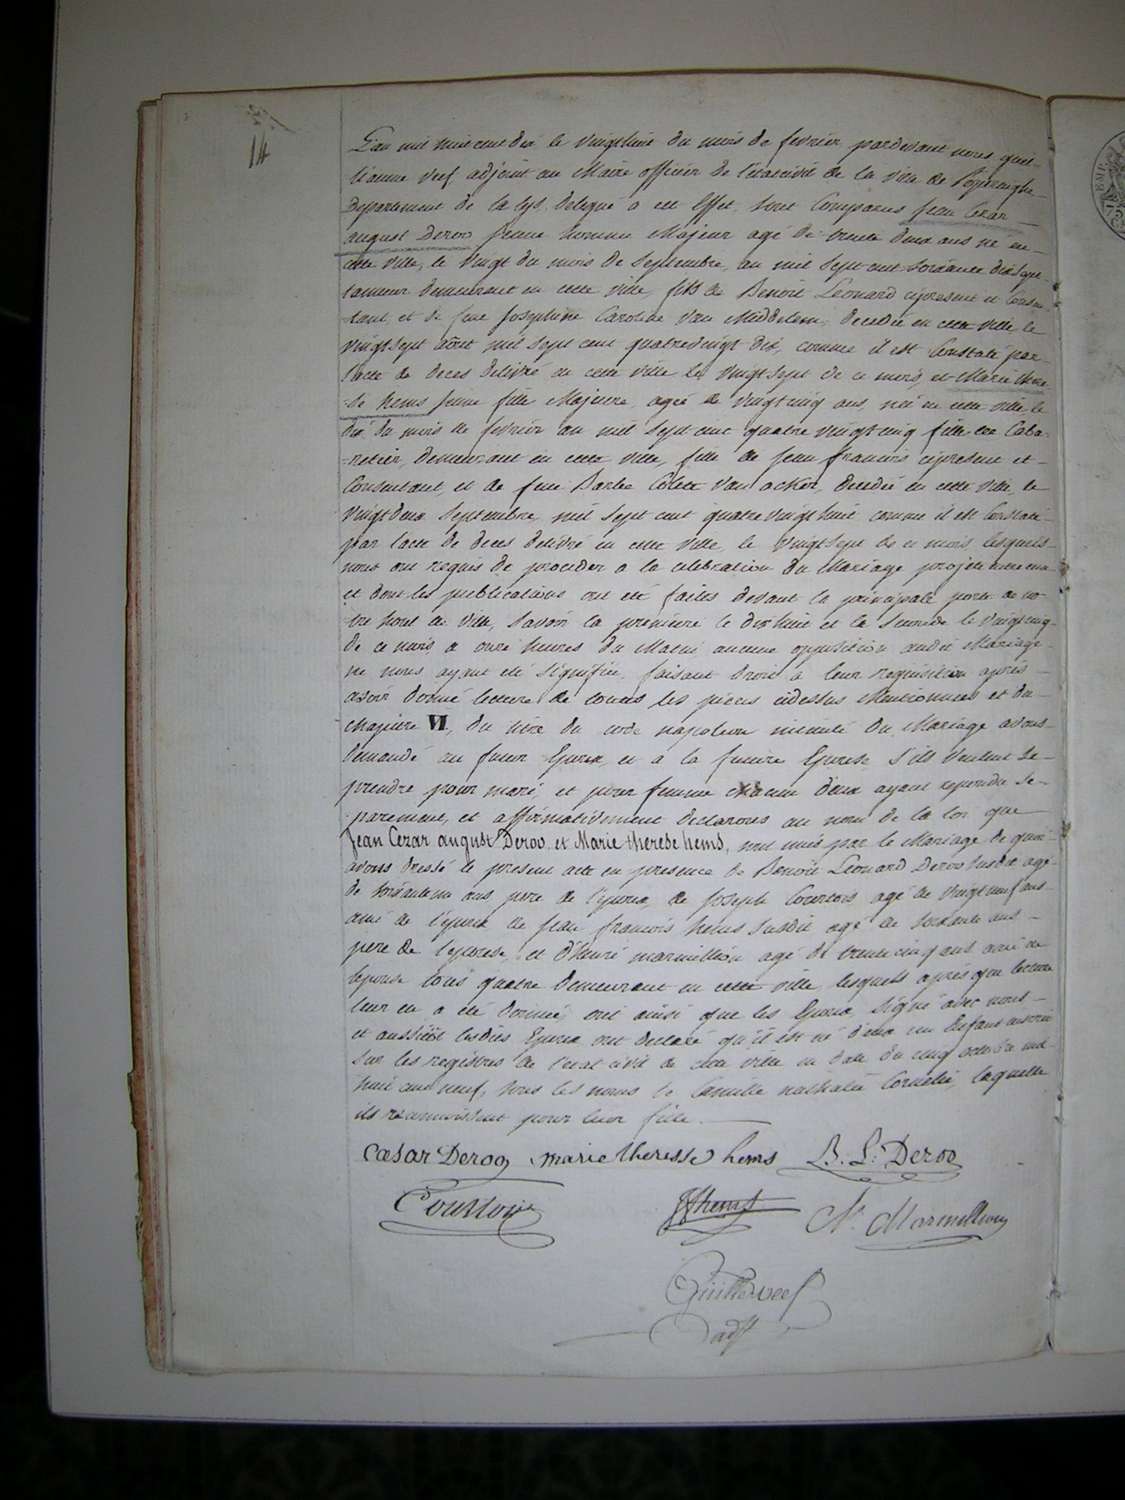 14
L'an mil huit cent dix le vingt huit du mois de fevrier pardevant nous guil-
liaume Veef adjoint au Maire officier de l'état civil de la ville de Poperinghe
Departement de la Lys, delegué a cet Effet, sont Comparus Jean Cezar
august Deroo jeune homme Majeur agé de trente deux ans né en
cette ville, le vingt du mois de Septembre, an mil sept cent soixante dix sept
demeurant en cette ville, fils de Benoit Léonard ci present et Consen
tant, et de feue Josephine Caroline Van Middelem, decedée en cette ville le
vingt sept août mil sept cent quatrevingt dix, comme il est Constaté par
l'acte de deces delivré en cette ville le vingt sept de ce mois, et Marie there
se hems jeune fille Majeure, agée de vingt cinq ans, née en cette ville le
dix du mois de fevrier an mil sept cent quatre vingt cinq fille de Caba-
retier, demeurant en cette ville, fille de jean francois ci present et
Consentant, et de feue Barbe Colette Van acker, decedée en cette ville, le
vingt deux Septembre, mil sept cent quatre vingt huit comme il est Constaté
par l'acte de deces delivré en cette ville, le vingt sept de ce mois lesquels
nous ont requis de proceder a la celebration du Mariage projeté entre eux
et dont les publications ont été faites devant la principale porte de no
tre hotel de ville, Savoir la premiere le dix huit et la Seconde le vingt cinq
de ce mois a onze heures du Matin aucune opposition audit Mariage
ne nous ayant été Signifiée, faisant droit à leur requisition après
avoir donné lecture de toutes les pieces cidessus Mentionnées et du
chapitre VI, du titre du code napoleon intitulé du Mariage avons
demandé au futur Epoux, et à la future Epouse S'ils veulent se
prendre pour mari, et pour femme chacun d'eux ayant repondu se-
parement, et affirmativement declarons au nom de la loi que
Jean Cezar august Deroo, et Marie therese hems, sont unis par le Mariage de quoi
avons dressé le present acte en presence de Benoit Léonard Deroo susdit agé
de ans pere de l'epoux, de Joseph Courtois agé de vingt neuf ans
ami de l'epoux de jean francois hems susdit agé de soixante ans
pere de l'epouse, et d'henri marmillion agé de trente cinq ans ami de
l'epouse tous quatre demeurant en cette ville, lesquels après que lecture
leur en a été donnée, ont ainsi que les Epoux signé avec nous
et aussitôt lesdits Epoux ont declaré qu'il est né d'eux un Enfant inscrit
sur les registres de l'etat civil de cette ville en date du cinq octobre mil
huit cent neuf, sous les noms de Camille nathalie Cornelie, laquelle
ils reconnoissent pour leur fille.
Cæsar Deroo marie theresse hems B. L. Deroo
Courtois JF hems h. Marmillion
Guille veef
adjt